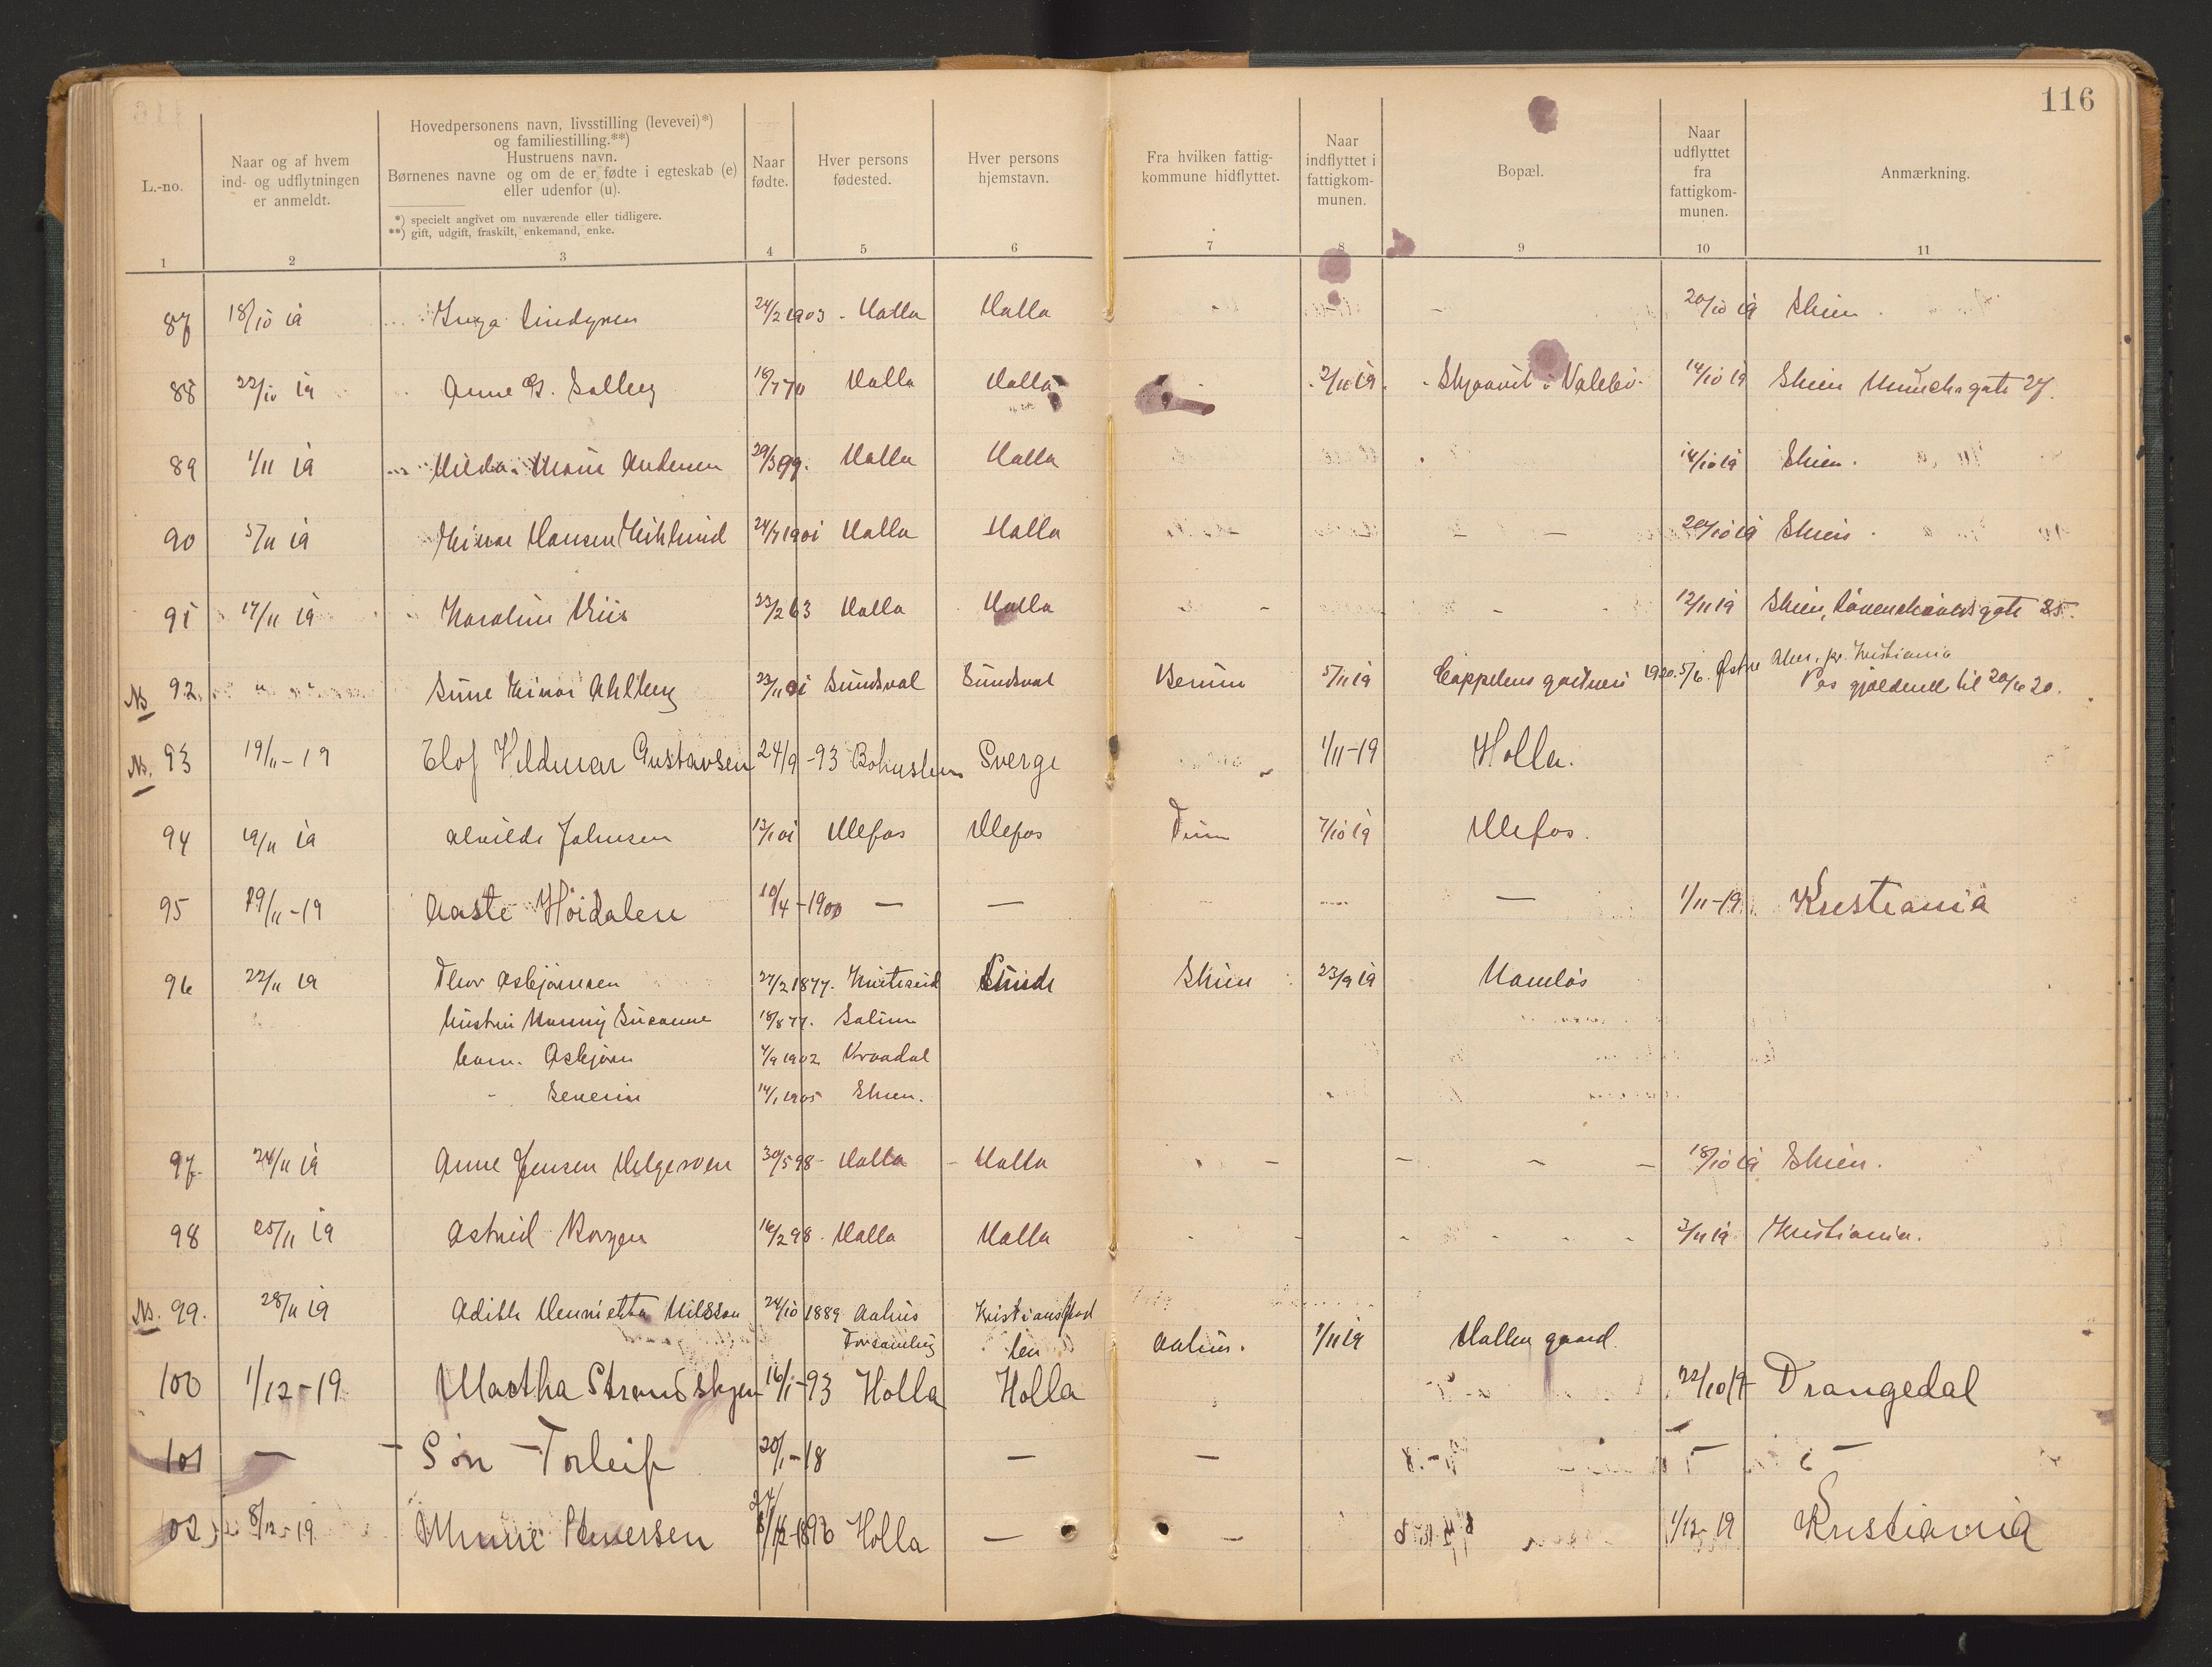 116
L.-no.
Naar og af hvem ind- og udflytningen er anmeldt.
Hovedpersonens navn, livsstilling (levevei)*)
og familiestilling.**)
Hustruens navn.
Børnenes navne og om de er fødte i egteskab (e)
eller udenfor (u).
*) specielt angivet om nuværende eller tidligere.
**) gift, udgift, fraskilt, enkemand, enke.
Naar fødte.
Hver persons fødested.
Hver persons hjemstavn.
Fra hvilken fattigkommune hidflyttet.
Naar indflyttet i fattigkommunen.
Bopæl.
Naar udflyttet fra fattigkommunen.
Anmærkning.
1 2 3 4 5 6 7 8 9 10 11
87 18/10 19 Inga Lindgren 24/2 1903 - Holla Holla - - 20/10 19 Skien
88 22/10 19 Anne G. Solberg 16/7 70 Holla Holla - 2/11 19 i Valebø 14/10 19 Skien Munchs gate 27.
89 1/11 19 Hilda Marie Andersen 29/3 99. Holla Holla 14/10 19 Skien.
90 5/11 19 Einar Hansen 24/7 1901 Holla Holla - - 20/10 19 Skien
91 17/11 19 Karoline Riis 23/2 63 Holla Holla - - - 12/11 19 Skien, gate 25.
Ns 92. " " Sune Einar Ahlberg 23/11 01 Sundsval Sundsval Berum 5/11 19 Cappelens gartneri 1920. 5/6. Østre Aker, pr. Kristiania
Pas gjældende til 20/6 20.
Ns. 93 19/11 - 19 Elof Valdmar Gustavsen 24/9 - 93 Bohuslen Sverge - 1/11-19 Holla.
94 19/11 19 Alvilde Johnsen 12/1 01 Ulefos Ulefos 7/10 19 Ulefos.
95 29/11 - 19 Aaste Høidalen 10/4 - 1900 — — — 1/11-19 Kristiania
96 22/11 19 Thor Asbjørnsen 27/2 1877. Lunde Skien 23/9 19 Namløs
hustru Nanny Susanne 18/8 77. Solum
barn. Asbjørn 4/9 1902 Kraadal
" Severin 14/1 1905 Skien.
97. 24/11 19 Anne Jensen Helgeroen 30/5 98 - Holla - Holla - - - - 18/10 19 Skien.
98 25/11 19 Astrid Borgen 16/2 98. Holla Holla - - - - 3/11 19 Kristiania.
Ns. 99. 28/11 19 Adith Henrietta Nilsson 24/10 1889 Aahus Kristianstad
Forsamling len Aahus. 1/11 19 Hollen gaard
100 1/12 - 19 Martha Strandskjen 16/1 - 93 Holla Holla 22/10 19 Drangedal
101 — - Søn - Torleif 20/1 - 18 — — — —
102 8/12 - 19 Holla — — 1/12 - 19 Kristiania